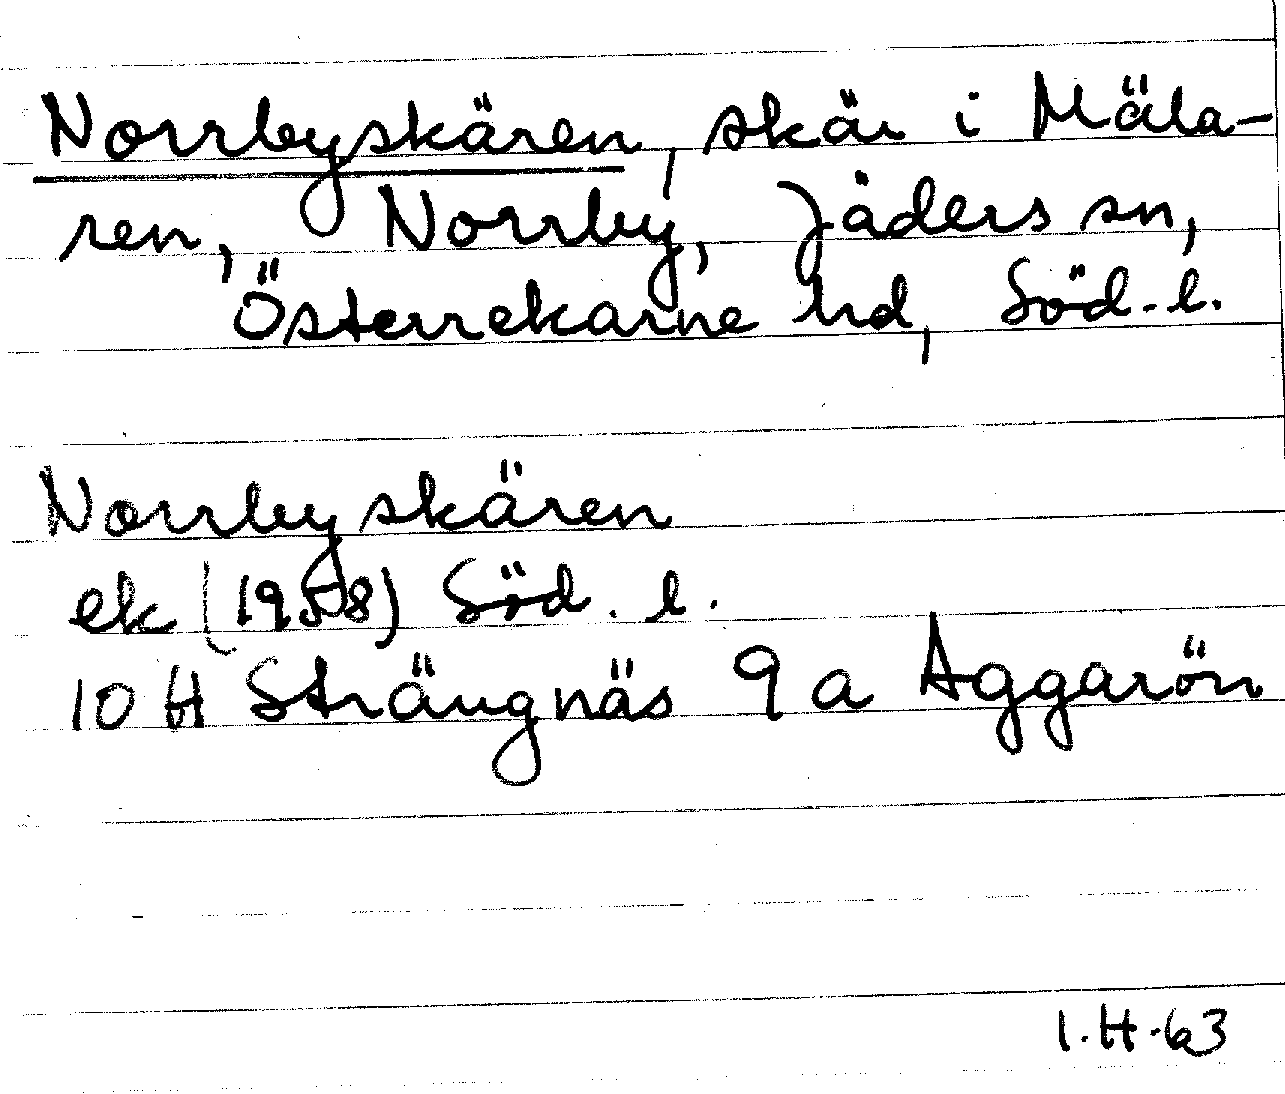 Norrbyskären, skär i Mäla-
ren, Norrby, Jäders sn,
Österrekarne hd, Söd. l.
Norrbyskären
ek (1958) Söd. l.
10 H Strängnäs 9 a Aggarön
I.H.63